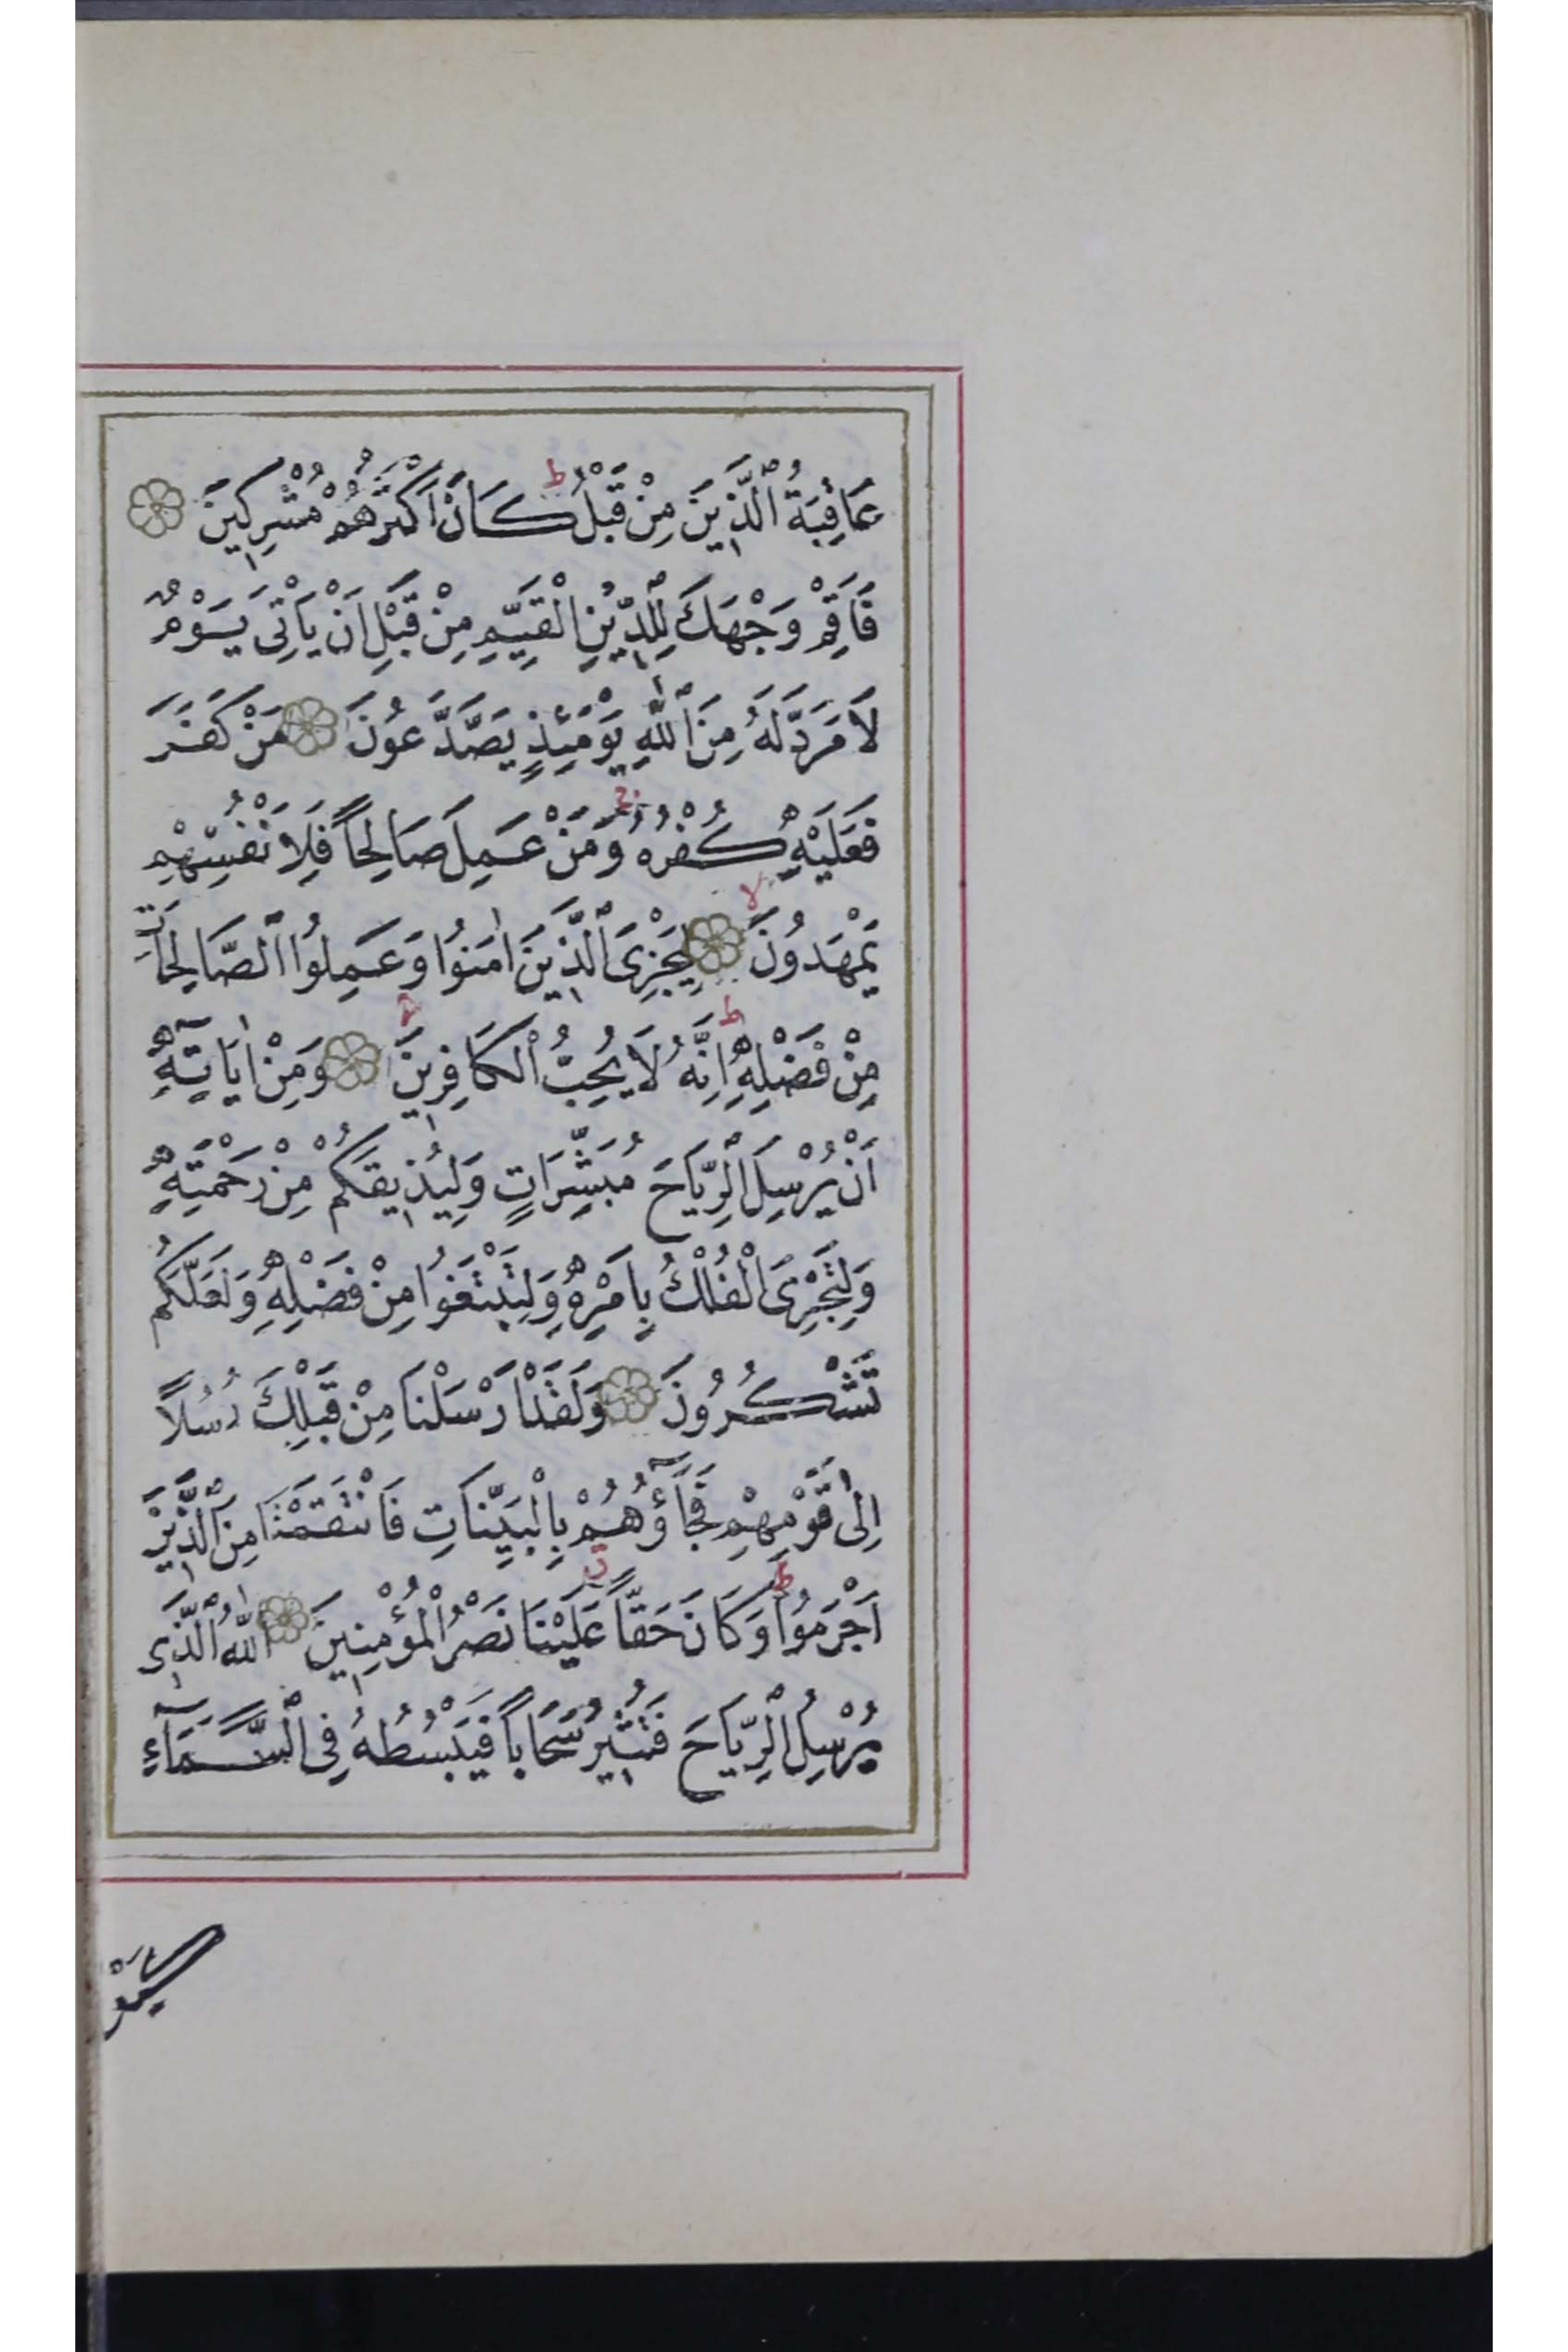 عَاقِبَةُ ٱلَّذِينَ مِنْ قَبْلُ ط كَانَ اَكْثَرُهُمْ مُشْرِكِينَ
فَاَقِمْ وَجْهَكَ لِلدِّينِ الْقَيِّمِ مِنْ قَبْلِ اَنْ يَاْتِىَ يَوْمٌ
لَا مَرَدَّ لَهُ مِنَ ٱللّٰهِ يَوْمَئِذٍ يَصَّدَّعُونَ مَنْ كَفَرَ
فَعَلَيْهِ كُفْرُهُ ج وَمَنْ عَمِلَ صَالِحاً فَلِاَنْفُسِهِمْ
يَمْهَدُونَ لا لِيَجْزِىَ ٱلَّذِينَ اٰمَنُوا وَعَمِلُوا ٱلصَّالِحَاتِ
مِنْ فَضْلِهِ ط اِنَّهُ لَا يُحِبُّ الْكَافِرِينَ وَمِنْ اٰيَاتِهِ
اَنْ يُرْسِلَ ٱلرِّيَاحَ مُبَشِّرَاتٍ وَلِيُذِيقَكُمْ مِنْ رَحْمَتِهِ
وَلِتَجْرِىَ الْفُلْكُ بِاَمْرِهِ وَلِتَبْتَغُوا مِنْ فَضْلِهِ وَلَعَلَّكُمْ
تَشْكُرُونَ وَلَقَدْ اَرْسَلْنَا مِنْ قَبْلِكَ رُسُلاً
اِلٰى قَوْمِهِمْ فَجَآؤُهُمْ بِالْبَيِّنَاتِ فَانْتَقَمْنَا مِنَ ٱلَّذِينَ
اَجْرَمُوا ط وَكَانَ حَقّاً عَلَيْنَا نَصْرُ الْمُؤْمِنِينَ اَللّٰهُ ٱلَّذِى
يُرْسِلُ ٱلرِّيَاحَ فَتُثِيرُ سَحَاباً فَيَبْسُطُهُ فِى ٱلسَّمَآءِ